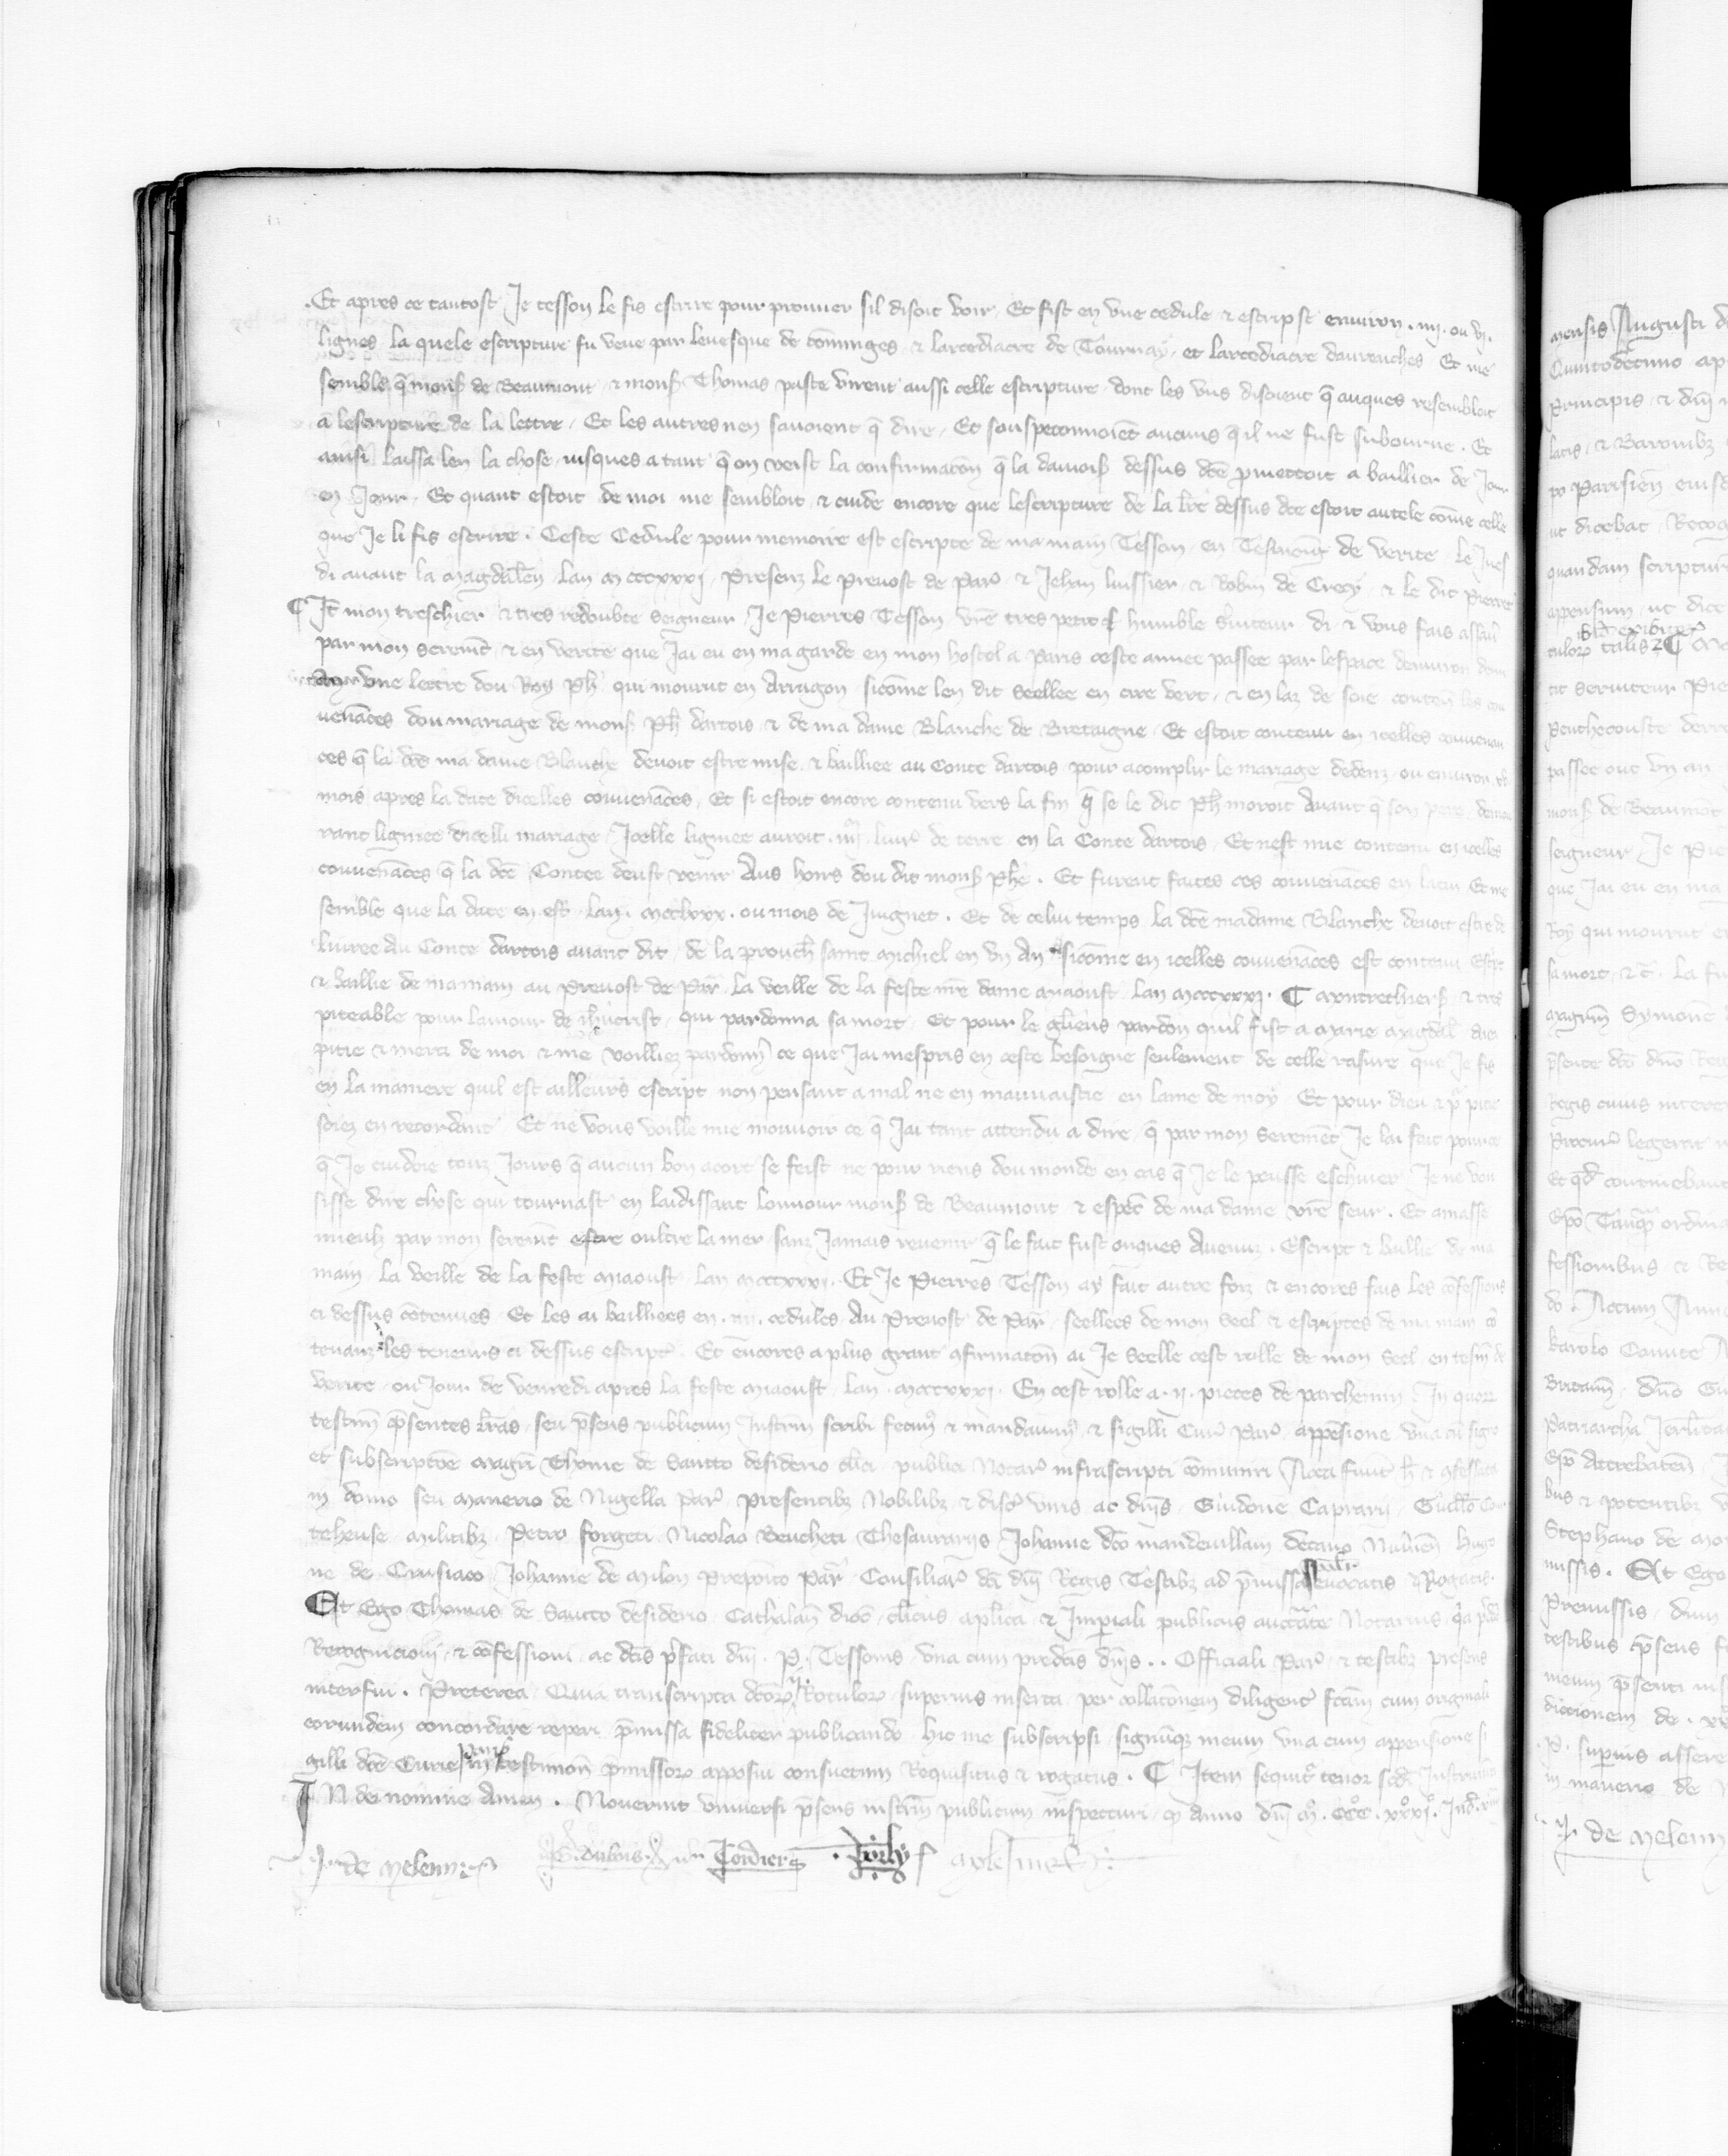 Et apres ce tantost Je tesson le fis escrire pour prouuer sil disoit voir Et fist en vne cedule & escripst enuiron . iiij . ou vj .
lignes la quele escripture fu veue par leuesque de cōminges & larcediacre de Tournay et larcediacre dauranches Et me
semble q̄ monsʳ de Beaumont & monsʳ Thomas paste virent aussi celle escripture dont les vns disoient q̄ auques resembloit
a lescripture de la lettre Et les autres nen sauoient q̄ dire Et souspeconnoiēt aucuns q̄ il ne fust subourne . Et
ainsi laissa len la chose iusques a tant q̄ on veist la confirmacōn q̄ la damoisʳ dessus dcē p̄mettoit a baillier de Jour
en Jour . Et quant estoit de moi me sembloit & cuide encore que lescripture de la lr̄e dessus dcē estoit autele cōme celle
que Je li fis escrire . Ceste Cedule pour memoire est escripte de ma main Tesson en Tesmoing de verite le Jues
di auant la magdalēn lan m cccxxxj Presenz le Preuost de Parˢ & Jehan luissier & Robin de Crecy & le dit Pierre
¶ Jt̄ mon treschier & tres redoubte seigneur Je Pierres Tesson vr̄e tres petit & humble s̄uiteur di & vous fais assauoir
par mon seremēt & en verite que Jai eu en ma garde en mon hostel a Paris ceste annee passee par lespace denuiron
vne lettre dou Roy Ph̄ qui mourut en Arragon sicōme len dit seellee en cire vert & en laz de soie conten̄ les con
uenāces dou mariage de monsʳ Ph̄ dartois & de ma dame Blanche de Bretaigne Et estoit contenu en icelles conuenan
ces q̄ la dcē ma dame Blanche deuoit estre mise & bailliee au Conte dartois pour acomplir le mariage dedenz ou enuiron
mois apres la date dicelles conuenāces Et si estoit encore contenu vers la fin q̄ se le dit Ph̄ moroit Auant q̄ son pere demou
rant lignee dicelli mariage Jcelle lignee auroit . iiijᵐ liurˢ de terre en la Conte dartois Et nest mie contenu en icelles
conuenāces q̄ la dcē Contee deust venir Aus hoirs dou dit monsʳ Ph̄e . Et furent faites ces conuenāces en latin Et me
semble que la date en est lan . mcclxxx . ou mois de Juignet . Et de celui temps la dcē madame Blanche deuoit estre de
liuree Au Conte dartois auant dit de la prouch̄ saint michiel en vn An sicōme en icelles conuenāces est contenu Escpt
& baillie de ma main au Preuost de Parˢ la veille de la feste nr̄e dame miaoust lan mcccxxxj . ¶ & tres
piteable pour lamour de ih̄ucrist qui pardonna sa mort Et pour le glieus pardon quil fist a marie magdal̄
pitie & merci de moi & me voilliez pardonner ce que Jai mespris en ceste besoigne seulement de celle rasure que Je fis
en la maniere quil est ailleurs escript non pensant a mal ne en mauuaistie en lame de moy Et pour dieu & pʳ pitie
soiez en recordant Et ne vous voille mie mouuoir ce q̄ Jai tant attendu a dire q̄ par mon seremēt Je lai fait pour ce
q̄ Je cuidoie touz Jours q̄ aucun bon acort se feist ne pour riens dou monde en cas q̄ Je le peusse eschiuer Je ne vou
sisse dire chose qui tournast en laidissant lonnour monsʳ de Beaumont & especˡ de ma dame vr̄e seur . Et amasse
mieulz par mon seremēt estre oultre la mer sanz Jamais reuenir q̄ le fait fust onques Auenuz . Escript & baillie de ma
main la veille de la feste miaoust lan mcccxxxj . Et Je Pierres Tesson ay fait autre foiz & encores fais les cōfessions
ci dessus cōtenues Et les ai bailliees en . iiij . cedules Au Preuost de Parˢ seellees de mon Seel & escriptes de ma main cō
tenanz les teneurs ci dessus escriptˢ Et encores a plus grant cfirmatōn ai Je Seelle cest rolle de mon Seel en tesmˢ de
verite ou Jour de venredi apres la feste miaoust lan . mcccxxxj . En cest rolle a . ij . pieces de parchemin Jn quorz
testim̄ p̄sentes lr̄as seu p̄sens publicum Jnstrm̄ scribi fecimˢ & mandauimˢ & sigilli Curˢ Parˢ appēsione vna cū signo
et subscriptōe magr̄i Thome de Sancto desiderio clˢici publici Notarˢ infrascripti cōmuniri Acta fuūt h̄ & cfessata
in domo seu manerio de Nigella Parˢ Presentibz Nobilibz & discˢ viris ac dn̄is Guidone Caprarij Guill̄o Cour
teheuse militibz Petro forgeti Nicolao Beucheti Thesaurarijs Johanne dc̄o mandeuillam decano Niuˢnēn Hugo
ne de Crusiaco Johanne de milon Prepoīto Parˢ Consiliarˢ dc̄i dn̄i Regis Testibz ad p̄missa euocatis & Rogatis .
Et Ego Thomas de Sancto desiderio Cathalan̄ dioc̄ clˢicus aplica & Jmperiali publicus auctātē Notarius q̄a p̄dc̄e
Recognicioni & cōfessioni ac dc̄is p̄fati dn̄i . P . Tessonis vna cum predc̄is dn̄is . . Officiali Parˢ & testibz presens
interfui . Preterea Quia transcripta dc̄orz ij . Rotulorz superius inserta per collatōnem diligentˢ fctām cum originali
eorundem concordare reperi p̄missa fideliter publicando hic me subscripsi signūqz meum vna cum appensione si
gilli dc̄e Curie Parˢ in testimōn p̄missorz apposui consuetum Requisitus & rogatus . ¶ Jtem sequitʳ tenor scd̄i Jnstrumenti
JN dei nomine Amen . Nouerint vniuersi p̄sens instrm̄ publicum inspecturi q̄ Anno dn̄i mᵒ . cccᵒ . xxxjᵒ . Jndˢ
J . de Meleun . G. dubois Cordier
mensis Augusti
Quintodecimo
Principis & dn̄i
latis & Baronibz
po Parisien̄
ut dicebat Recog
quandam scriptur
appensum ut dice
tulorz talis ¶
tit seruiteur Pie
Penthecouste derr
passee out vn an
monsʳ de Beaumōt
seigneur Je Pie
que Jai eu en ma
Roy qui mourut en
sa mort & c̄ . La
magr̄m Symonē
p̄sente dc̄o dn̄o Reg
Regis cuius
legerit
Et qd̄ continebant
fessionibus & Re
do . Actum Anno
karolo Comite
Britān̄ dn̄o
Patriarcha
Ep̄o Attrebatēn
bus & potentibz
Stephano de
missis . Et Ego
Premissis dum
testibus p̄sens
meum p̄senti
diccionem de . xx
. P . superius assere
in manerio de
J . de Meleun